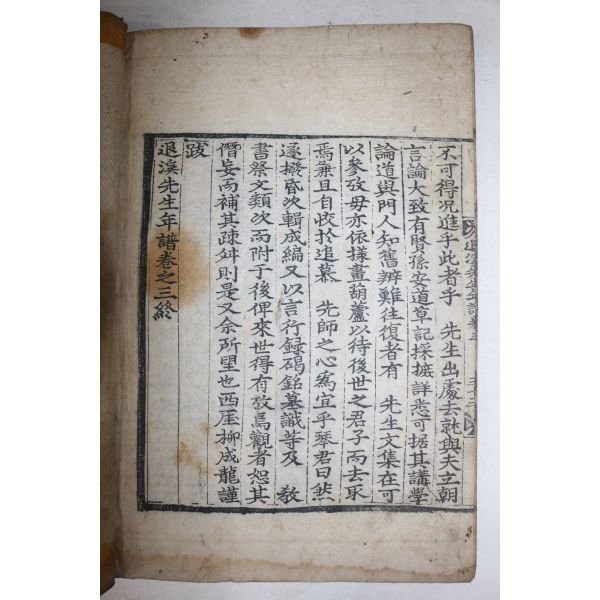 不可得况進乎此者乎 先生出處去就與夫立朝
言論大致有賢孫安道草記採摭詳悉可据其講學
論道與門人知舊辨難往復者有 先生文集在可
以參攷毋亦依㨾畫葫蘆以待後世之君子而去取
焉兼且自收於追慕 先師之心爲宜乎琴君曰然
遂撥昏次輯成編又以言行録碣銘墓識等及 敎
書祭文類次而附于後俾來世得有攷焉觀者恕其
僭妄而補其疎舛則是又余所望也西厓柳成龍謹
跋
退溪先生年譜卷之三終